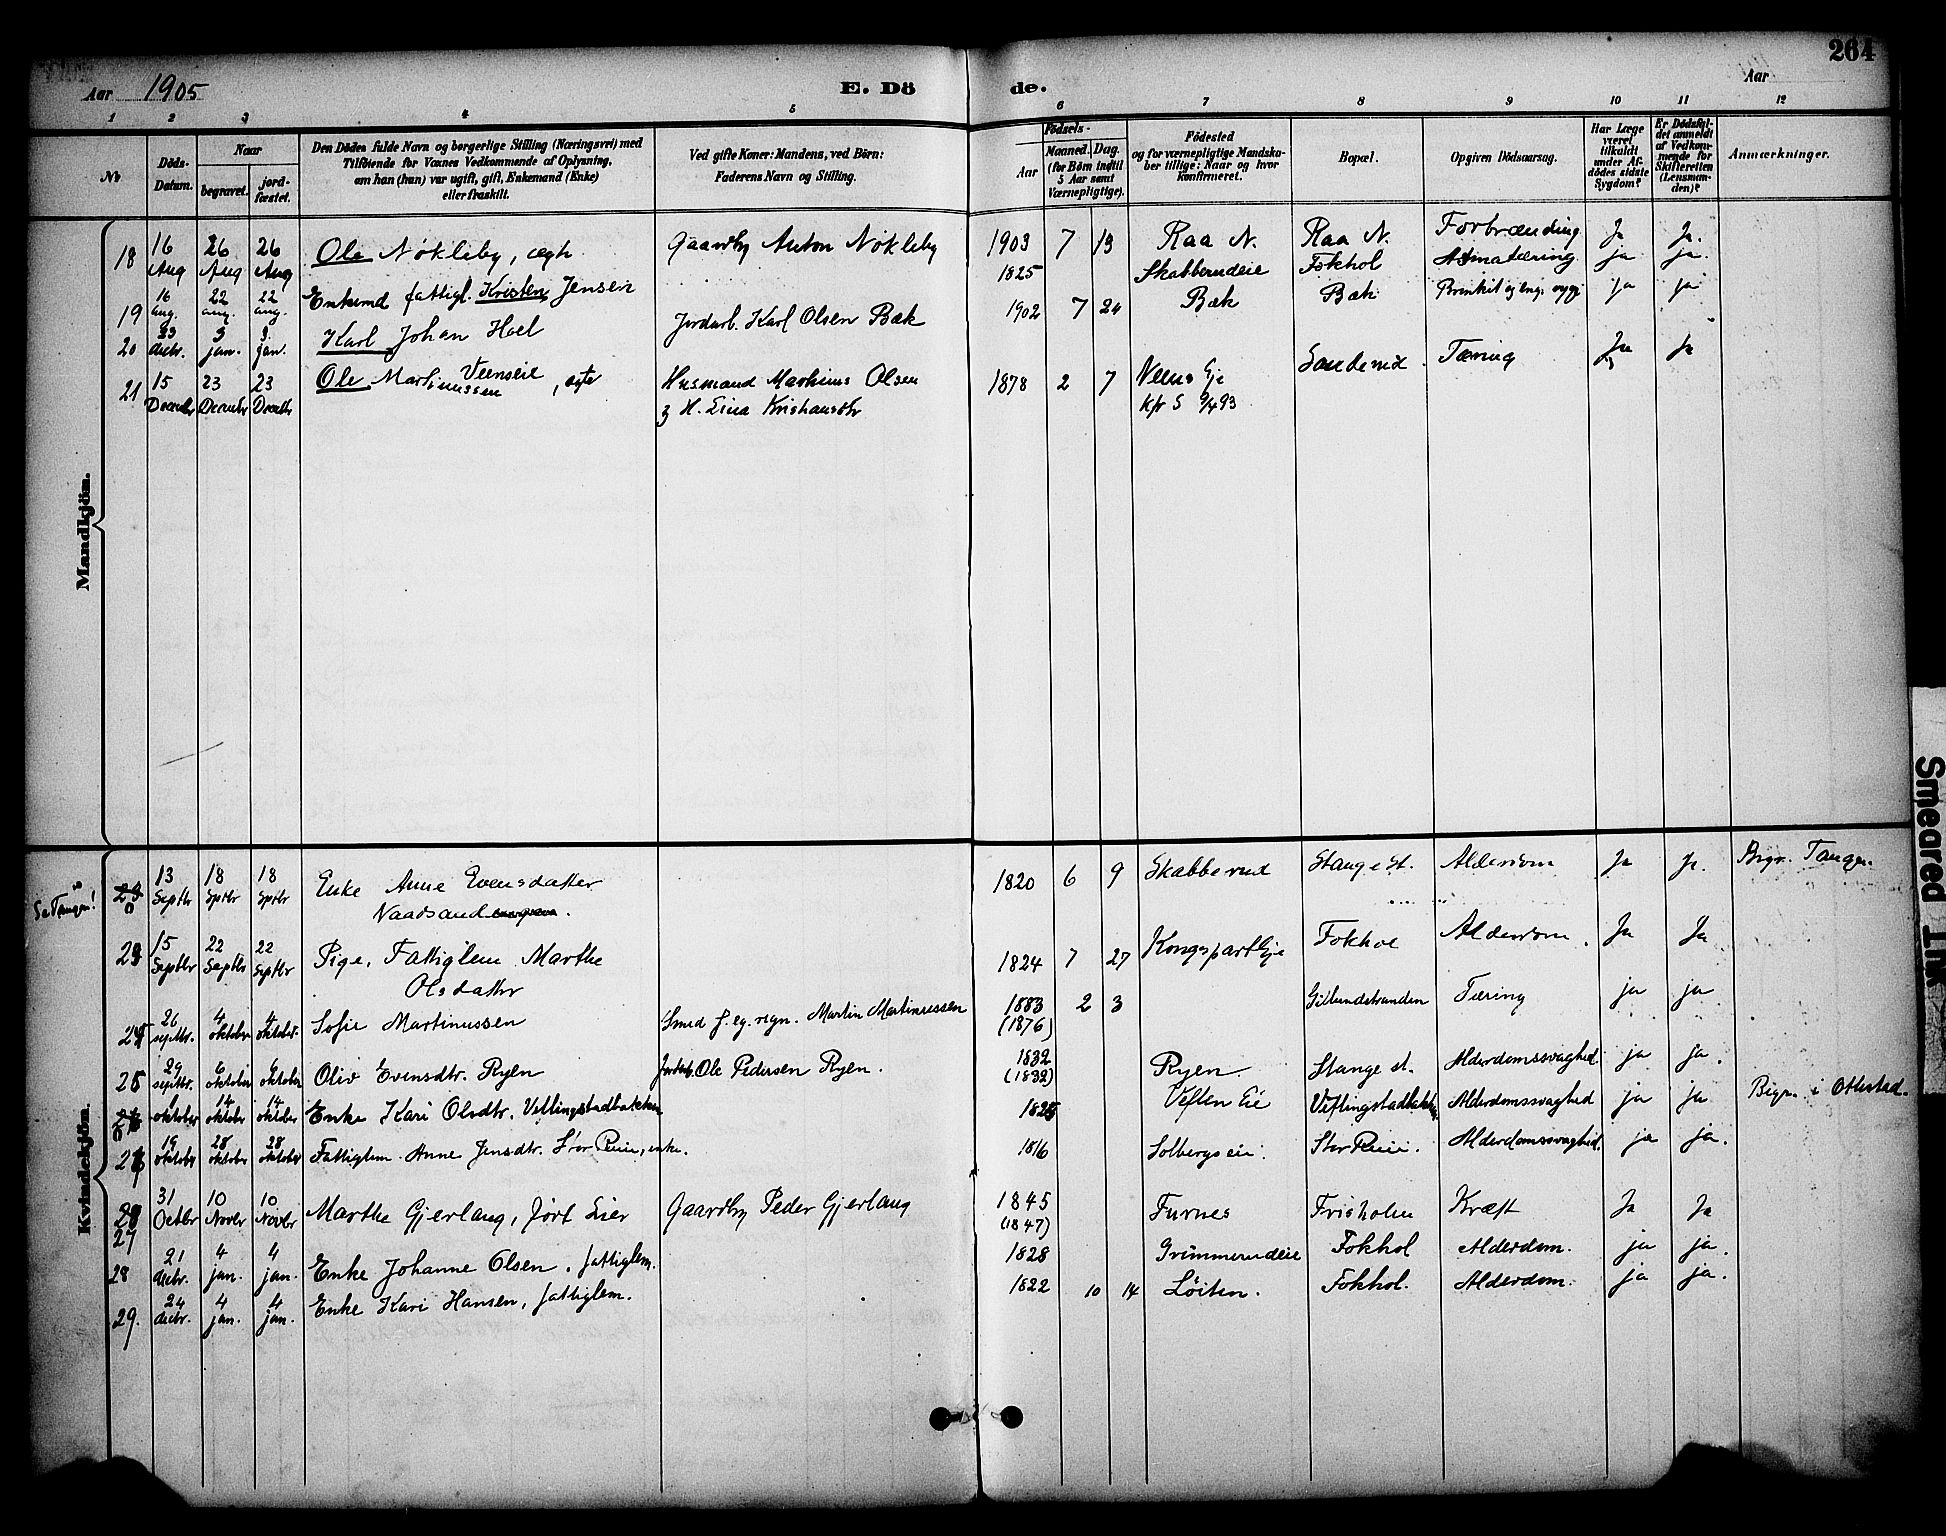 264
Aar 1905 E. Dö de. Aar
1 2 3 4 5 6 7 8 9 10 11 12
No
Döds-Datum.
Naar
begravet. jord-fæstet.
Den Dödes fulde Navn og borgerlige Stilling (Næringsvei) med
Tilföiende for Voxnes Vedkommende af Oplysning,
om han (hun) var ugift, gift, Enkemand (Enke)
eller fraskilt.
Ved gifte Koner: Mandens, ved Börn:
Faderens Navn og Stilling.
Födsels-
Aar Maaned. Dag.
(for Börn indtil
5 Aar samt
Værnepligtige).
Födested
og for værnepligtige Mandska-
ber tillige: Naar og hvor
konfirmeret.
Bopæl.
Opgiven Dödsaarsag.
Har Læge
været
tilkaldt
under Af-
dödes sidste
Sygdom?
Er Dödsfal-
det anmeldt
af Vedkom-
mende for
Skifteretten
(Lensman-
den)?
Anmærkninger.
Mandkjön.
18 16 Aug 26 Aug 26 Aug Ole Nøkleby, ægte Gaardbr Anton Nøkleby 1903 7 13 Raa N. Raa N. Forbrænding Ja Ja.
19 16 aug. 22 aug. 22 aug. Enkemd fattigl. Kristen Jensen 1825 Skabberudeie Fokhol Astma tæring ja ja.
20 jan. jan. Karl Johan Hoel Jordarb. Karl Olsen Bæk 1902 7 24 Bæk Bæk ja ja
21 15 Decembr 23 Decembr 23 Decembr Ole Martinussen Veenseie, ægte Husmand Martinus Olsen 1878 2 7 Veens Eje Sanderud Tæring Ja Ja
H. Lina Kristiansdtr kfr S 9/4 93
Kvindekjön.
Se Tangen! 13 Septbr 18 Septbr 18 Septbr Enke Anne Evensdatter 1820 6 9 Skabberud Stange st. Alderdom Ja Ja. Begr. Tangen.
Naadsand
23 15 Septbr 22 Septbr 22 Septbr Pige, Fattiglem Marthe 1824 7 27 Kongsparteje Fokhol Alderdom. Ja Ja
Olsdatter
24 26 septbr. 4 oktober 4 oktober. Sofie Martinussen Smed Martin Martinussen 1883 (1876) 2 3 Gillundstranden Tæring ja ja
25 29 septbr. 6 oktober 6 oktober Oliv Evensdtr. Ryen Jordarb. Ole Pedersen Ryen. 1832 (1832) Ryen. Stange st. Alderdomssvaghed. ja ja.
oktober 14 oktober 14 oktober Enke Kari Olsdtr. Veflingstadbakken 1825 Veflen Eie Veflingstadbakken Alderdomssvaghed ja ja Begr. i Ottestad.
19 oktober 28 oktober 28 oktober Fattiglem Anne Jensdtr. Stor Rune, enke. 1816 Solbergs eie. Stor Rune. Alderdomssvaghed. ja ja.
27 31 Octbr 10 Novbr 10 Novbr Marthe Gjerlaug, født Lier Gaardbr Peder Gjerlaug 1845 (1847) Furnes Frisholm Kræft Ja Ja
28 21 decbr. 4 jan. 4 jan. Enke Johanne Olsen, fattiglem. 1828 Grimmerudeie Fokhol Alderdom. ja ja.
29. 24 decbr. 4 jan. 4 jan. Enke Kari Hansen, fattiglem. 1822 10 14 Løiten. Fokhol. Alderdom. ja ja.
Smeared Ink